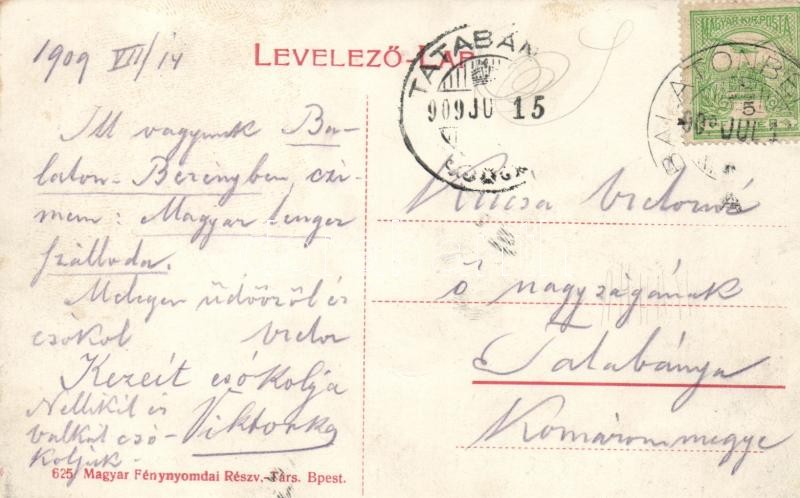 1909 VII/14
LEVELEZŐ-LAP
TATABÁN
909 JU 15
MAGYAR KIR. POSTA
BALATONBE
5
Itt vagyunk Ba-
laton-Berényben, czi-
mem: Magyar tenger
szálloda.
Melegen üdvözöl és
csókol Victor
Kezeit csókolja
Viktorka
Nellikét és
csó-
koljuk.
Victorné
ő nagyságának
Tatabánya
Komárom megye
625 Magyar Fénynyomdai Részv.-Társ. Bpest.